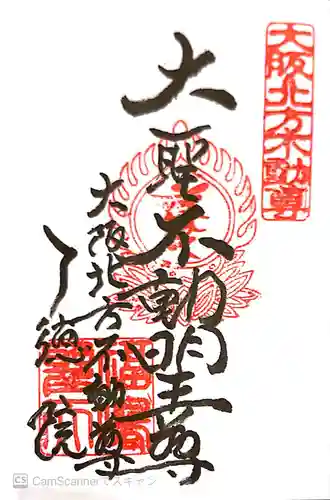 大阪北方不動尊
大聖不動明王尊
大阪北方不動尊
了徳院
CS CamScannerでスキャン